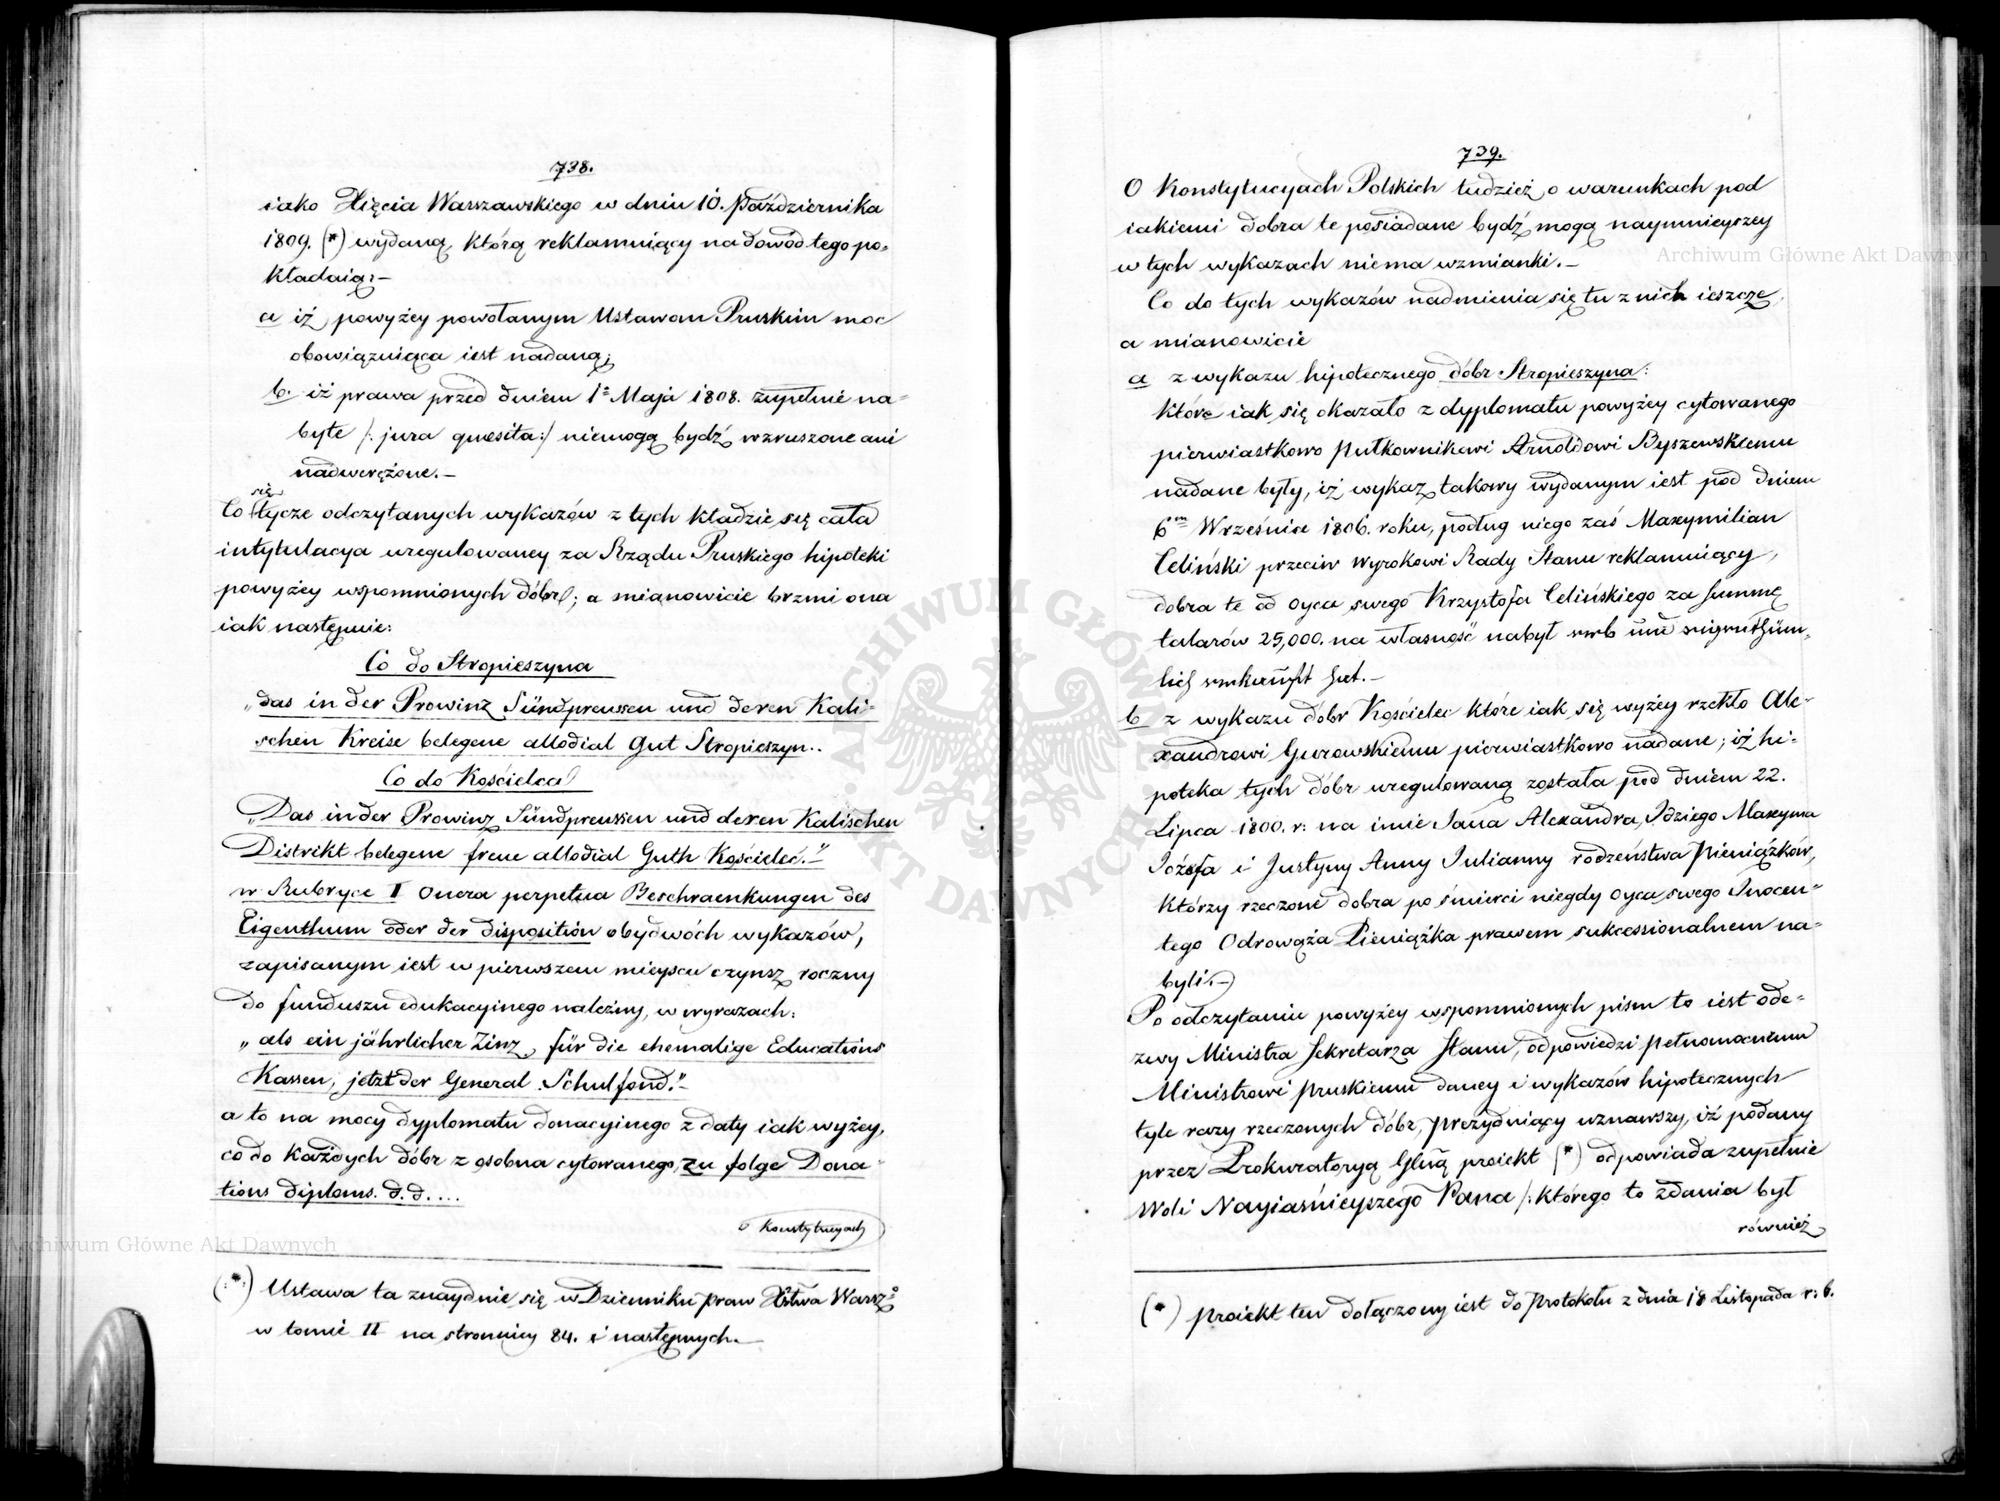 738.
iako Xięcia Warszawskiego w dniu 10. Października
1809. (*) wydaną, którą reklamuiący na dowód tego po-
kładaią:-
a iż powyżey powołanym Ustawom Pruskim moc
obowiązuiąca iest nadaną;
b. iż prawa przed dniem 1º Maja 1808. zupełnie na-
byte /: jura quesita:/ niemogą bydź wzruszone ani
nadwerężone.-
Co się tycze odczytanych wykazów z tych kładzie się cała
intytulacya uregulowaney za Rządu Pruskiego hipoteki
powyżey wspomnionych dóbr; a mianowicie brzmi ona
iak następuie:
Co do Stropieszyna
"das in der Prowinz Südpreussen und deren Kali-
schen Kreise belegene allodial Gut Stropieszyn..
Co do Kościelca
"Das in der Prowinz Südpreussen und deren Kalischen
Distrikt belegene freue allodial Guth Kościelec."
w Rubryce I onera perpetua Beschraenkungen des
Eigenthum oder der disposition obydwóch wykazów,
zapisanym iest w pierwszem mieyscu czynsz roczny
do funduszu edukacyinego należny, w wyrazach:
"als ein jährlicher Zinz, für die ehemalige Educations
Kassen, jetzt der General Schulfond."
a to na mocy dyplomatu donacyinego z daty iak wyżey,
co do każdych dóbr z osobna cytowanego, zu folge Dona-
tions diploms. d. d....
o Konstytucyach
(*) Ustawa ta znayduie się w Dzienniku praw Xstwa Warszº
w tomie II na stronnicy 84. i następnych.
739.
O Konstytucyach Polskich tudzież o warunkach pod
iakiemi dobra te posiadane bydź mogą naymnieyszey
w tych wykazach niema wzmianki.-
Co do tych wykazów nadmienia się tu z nich ieszcze,
a mianowicie
a z wykazu hipotecznego dóbr Stropieszyna:
które iak się okazało z dyplomatu powyżey cytowanego
pierwiastkowo pułkownikowi Arnoldowi Byszewskiemu
nadane były, iż wykaz takowy wydanym iest pod dniem
6m Września 1806. roku, podług niego zaś Maxymilian
Celiński przeciw wyrokowi Rady Stanu reklamuiący,
dobra te od oyca swego Krzysztofa Celińskiego za summę
talarów 25,000. na własność nabył erb und eigenthüm-
lich erkauft hat.-
b z wykazu dóbr Kościelec które iak się wyżey rzekło Ale-
xandrowi Gurowskiemu pierwiastkowo nadane; iż hi-
poteka tych dóbr uregulowaną została pod dniem 22.
Lipca 1800. r: na imie Jana Alexandra, Idziego Maxyma
Józefa i Justyny Anny Julianny rodzeństwa Pieniążków,
którzy rzeczone dobra po śmierci niegdy oyca swego Inocen-
tego Odrowąża Pieniążka prawem sukcessionalnem na-
byli.-
Po odczytaniu powyżey wspomnionych pism to iest ode-
zwy Ministra Sekretarza Stanu, odpowiedzi pełnomocnemu
Ministrowi pruskiemu daney i wykazów hipotecznych
tyle razy rzeczonych dóbr, prezyduiący uznawszy, iż podany
przez Prokuratoryą Głną proiekt (*) odpowiada zupełnie
Woli Nayiaśnieyszego Pana /: którego to zdania był
również
(*) proiekt ten dołączony iest do protokołu z dnia 18 Listopada r: b.
Archiwum Główne Akt Dawnych
Archiwum Główne Akt Dawnych
ARCHIWUM GŁÓWNE AKT DAWNYCH